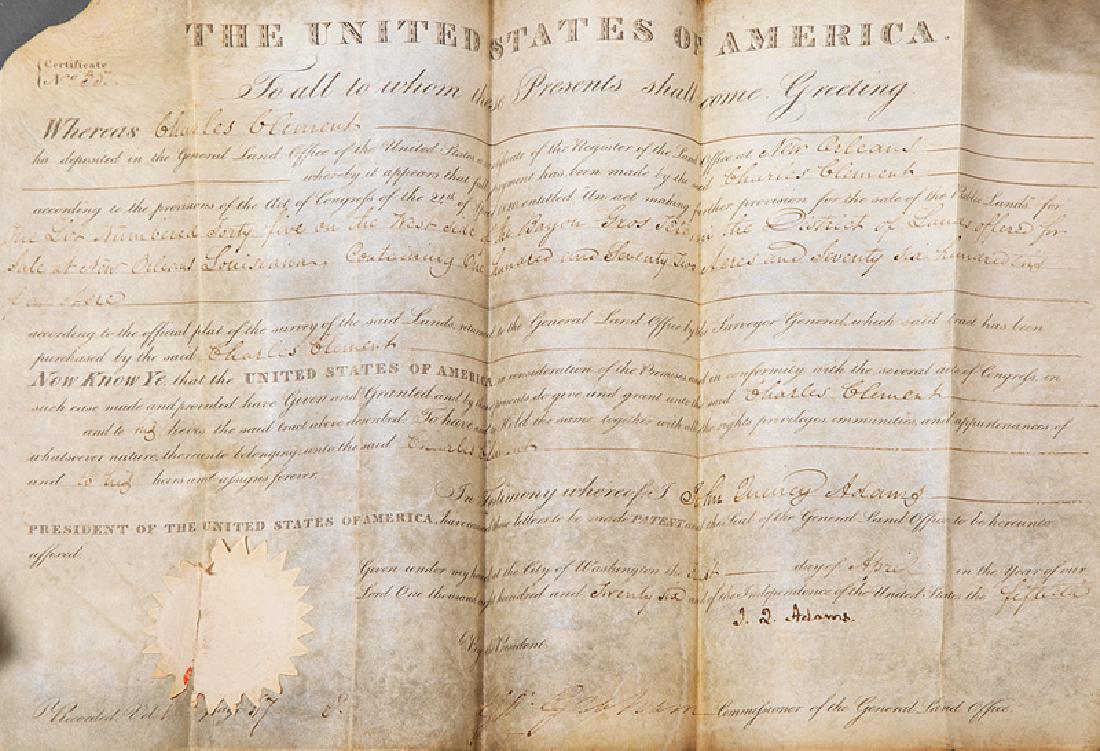 THE UNITED STATES OF AMERICA.
Certificate
No 35.
To all to whom these Presents shall come. Greeting
Whereas Charles Clement
ha deposited in the General Land Office of the United States a certificate of the Register of the Land Office at New Orleans
whereby it appears that full payment has been made by the said Charles Clement
according to the provisions of the Act of Congress of the 24th of April 1820, entitled "An act making further provision for the sale of the Public Lands" for
The Lot Numbered Forty five on the West side of the Bayou Gros Tete in the District of Lands offered for
Sale at New Orleans Louisiana, Containing One Hundred and Seventy Two Acres and Seventy six hundredths
of an Acre
according to the official plat of the survey of the said Lands, returned to the General Land Office by the Surveyor General, which said tract has been
purchased by the said Charles Clement
Now Know Ye, that the UNITED STATES OF AMERICA, in consideration of the Premises, and in conformity with the several acts of Congress, in
such case made and provided, have Given and Granted, and by these presents do give and grant unto the said Charles Clement
and to his heirs, the said tract above described: To have and to Hold the same, together with all the rights, privileges, immunities, and appurtenances of
whatsoever nature, thereunto belonging, unto the said Charles Clement
and to his heirs and assigns forever.
In Testimony whereof, I John Quincy Adams
PRESIDENT OF THE UNITED STATES OF AMERICA, have caused these letters to be made PATENT, and the Seal of the General Land Office to be hereunto
affixed.
Given under my hand at the City of Washington, the day of April in the Year of our
Lord One thousand eight hundred and Twenty six and of the Independence of the United States the fiftieth
J. Q. Adams.
By the President
Recorded, Vol. page 37
Geo Graham Commissioner of the General Land Office.